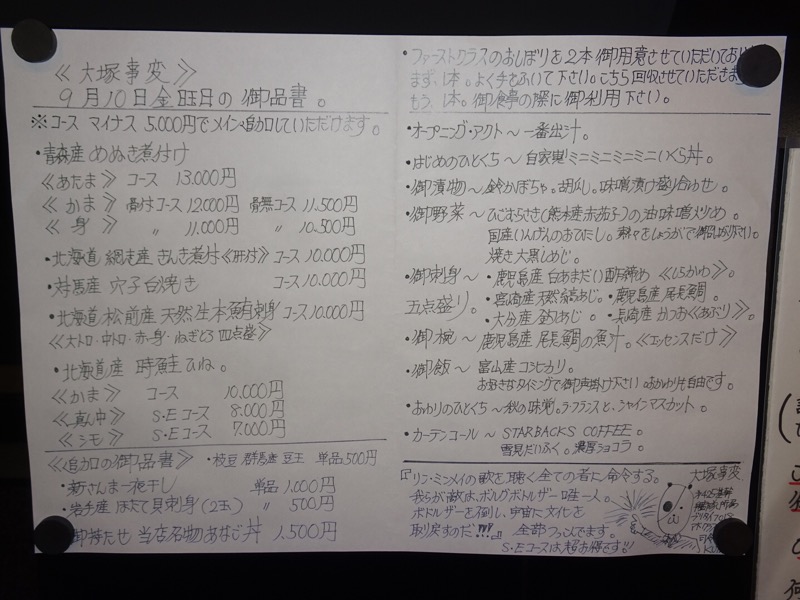 ≪大塚事変≫
9月10日金曜日の御品書。
※コース マイナス 5.000円でメイン追加していただけます。
・青森産 めぬき煮付け
≪あたま≫ コース 13.000円
≪かま≫ 骨付コース 12.000円 骨無コース 11.500円
≪身≫ 〃 11.000円 〃 10.500円
・北海道 網走産 きんき煮付≪形付≫ コース 10.000円
・対馬産 穴子白焼き コース 10.000円
・北海道 松前産 天然生本鮪刺身 コース 10.000円
≪大トロ・中トロ・赤身・ねぎとろ 四点盛≫
・北海道産 時鮭ひね。
≪かま≫ コース 10.000円
≪真中≫ S・Eコース 8.000円
≪シモ≫ S・Eコース 7.000円
≪追加の御品書≫ ・枝豆 群馬産 豆王 単品500円
・新さんま一夜干し 単品 1.000円
・岩手産 ほたて貝刺身(2玉) 〃 500円
御持たせ 当店名物あなご丼 1.500円
・ファーストクラスのおしぼりを2本御用意させていただいており
ます、1本。よく手をふいて下さい。こちら回収させていただきま
もう、1本。御食事の際に御利用下さい。
・オープニング・アクト～一番出汁。
・はじめのひとくち～自家製ミニミニミニミニいくら丼。
・御漬物～鈴かぼちゃ。胡瓜。味噌漬け盛り合わせ。
・御野菜～ひごむらさき(熊本産赤茄子)の油味噌炒め。
国産いんげんのおひたし。
焼き大黒しめじ。
・御刺身～・鹿児島産 白あまだい酢締め≪しらかわ≫。
五点盛り。・宮崎産天然縞あじ。・鹿児島産 尾長鯛。
・大分産 釣あじ。・長崎産 かつお≪あぶり≫。
・御椀～鹿児島産 尾長鯛の魚汁。≪エッセンスだけ≫
・御飯～富山産コシヒカリ。
お好きなタイミングで御声掛け下さい。おかわりも自由です。
・おわりのひとくち～秋の味覚。ラ・フランスと、シャインマスカット。
・カーテンコール～STARBACKS COFFEE。
雪見だいふく。濃厚ショコラ。
『リン・ミンメイの歌を聴く全ての者に命令する。
我らが敵は、ボルグボドルザー唯一人。
ボドルザーを倒し、宇宙に文化を
取り戻すのだ!!!』 全部つっこんでます。
S・Eコースは超お得です!!
大塚事変